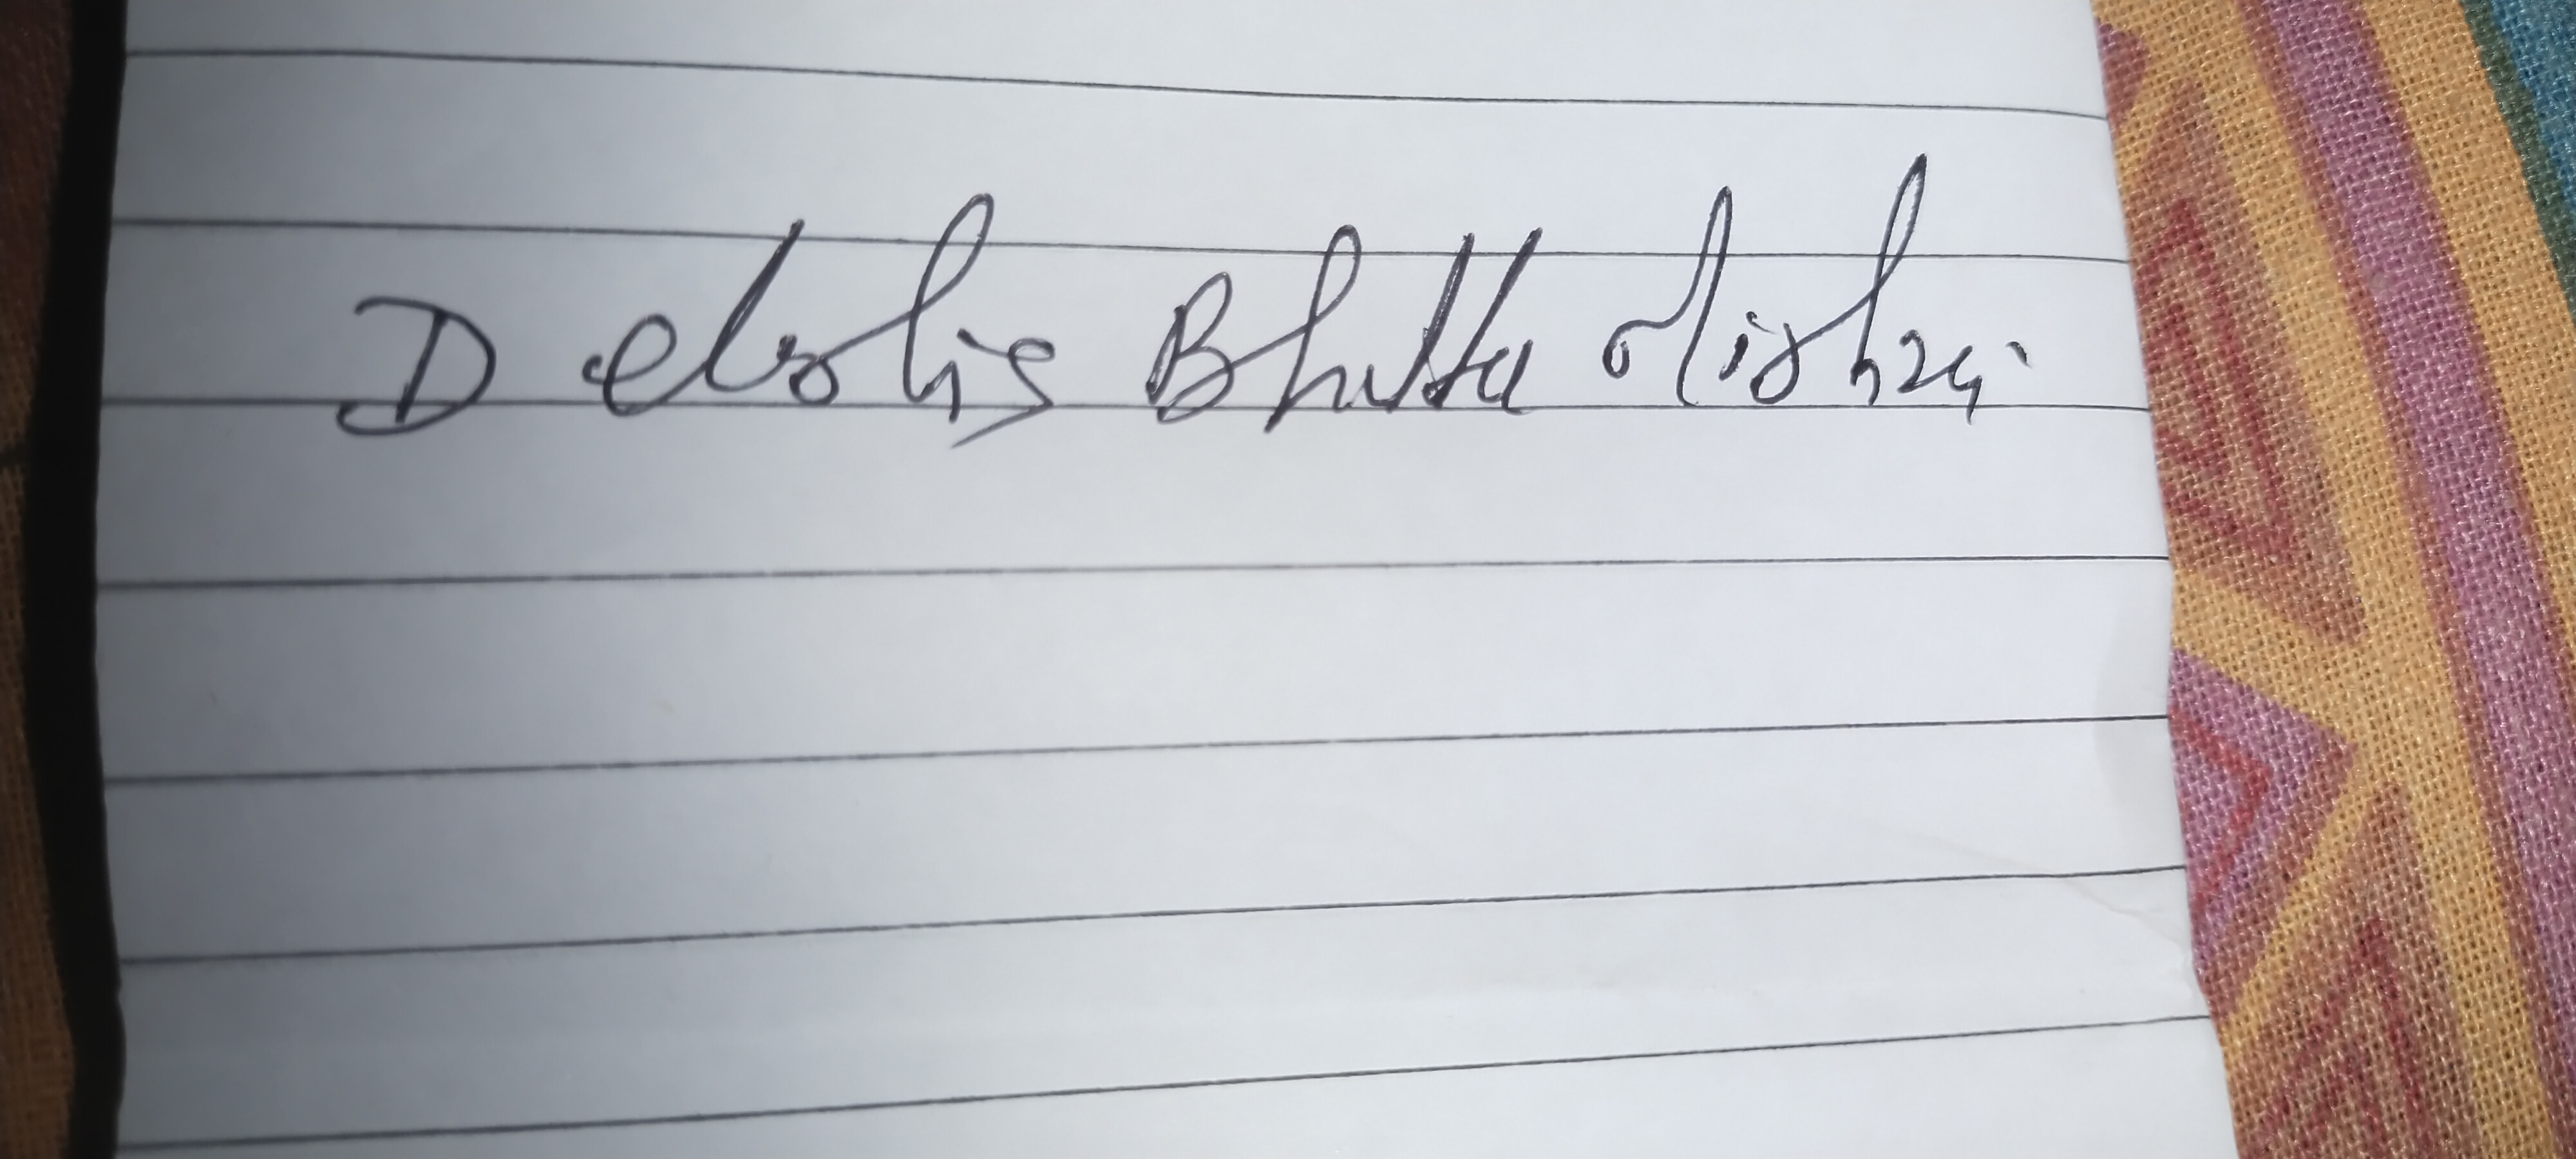 Debolis Bhatta Mishra